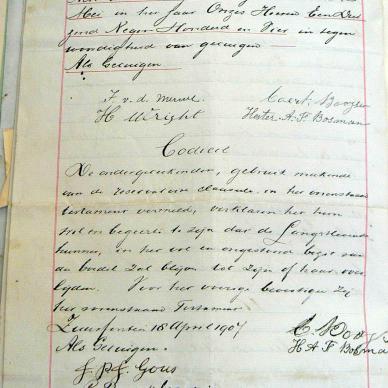 Mei in het Jaar Onzes Heeren Een Dui
zend Negen Honderd en Vier in tegen
woordigheid van getuigen
Als Getuigen
F. v. d. Merwe
H Wright
Hester A. F. Bosman
Codicil
De ondergeteekenden, gebruik makende
van de reservatoire clausule in het
testament vermeld, verklaren het hun
wil en begeerte te zijn dat de Langstlevende
hunner, in het vol en ongestoord bezit van
den boedel zal blijven tot zijn of haar over
lyden. Voor het overige bevestigen zij
het Testament
18 April 1907
Als Getuigen.
H A F Bosman